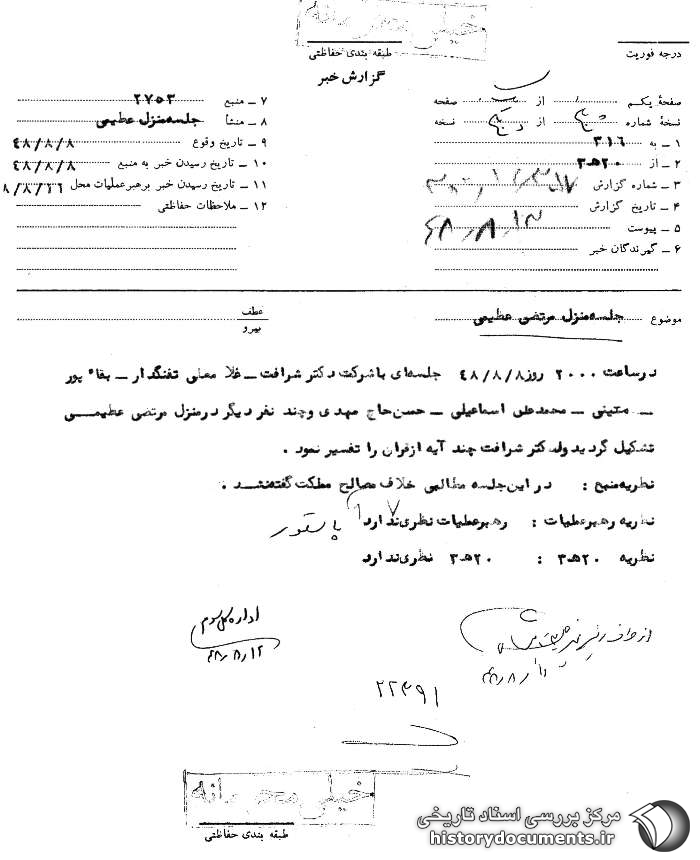 خیلی محرمانه
طبقه بندی حفاظتی
درجه فوریت
گزارش خبر
صفحهٔ یکم از یک صفحه
نسخهٔ شماره از نسخه
۱ ـ به ۳۱۶
۲ ـ از ۲۰ه‍۳
۳ ـ شماره گزارش
۴ ـ تاریخ گزارش ۴۸/۸/۱۲
۵ ـ پیوست
۶ ـ گیرندگان خبر
۷ ـ منبع ۲۷۵۳
۸ ـ منشأ جلسه منزل عظیمی
۹ ـ تاریخ وقوع ۴۸/۸/۸
۱۰ ـ تاریخ رسیدن خبر به منبع ۴۸/۸/۸
۱۱ ـ تاریخ رسیدن خبر برهبر عملیات محل
۱۲ ـ ملاحظات حفاظتی
موضوع جلسه منزل مرتضی عظیمی
عطف
پیرو
درساعت ۲۰۰۰ روز ۴۸/۸/۸ جلسه‌ای با شرکت دکتر شرافت ـ غلامعلی تفنگدار ـ بقاء پور
ـ متینی ـ محمدعلی اسماعیلی ـ حسن حاج مهدی وچند نفر دیگر درمنزل مرتضی عظیمی
تشکیل گردید و دکتر شرافت چند آیه از قران را تفسیر نمود .
نظریه منبع : در این جلسه مطالبی خلاف مصالح مملکت گفته نشد .
نظریه رهبر عملیات : رهبر عملیات نظری ندارد
نظریه ۲۰ه‍۳ : ۲۰ه‍۳ نظری ندارد
اداره کل سوم
۴۸/۸/۱۲
از طرف
۲۲۴۹۱
خیلی محرمانه
طبقه بندی حفاظتی
مرکز بررسی اسناد تاریخی
historydocuments.ir